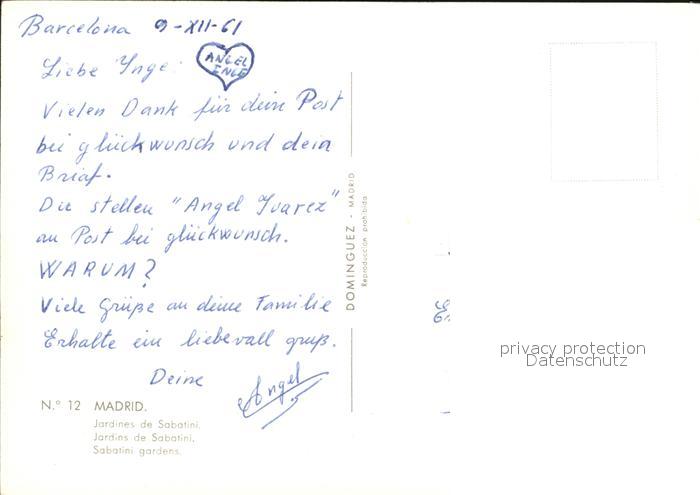 Barcelona 9-XII-61
Liebe Ynge:
ANGEL
ENGE
Vielen Dank für dein Post
bei glückwunsch und dein
Briaf.
Die stellen "Angel Yuarez"
an Post bei glückwunsch.
WARUM?
Viele Grüße an deine Familie
Erhalte ein liebevall gruß.
Deine
Angel
N.° 12 MADRID.
Jardines de Sabatini.
Jardins de Sabatini.
Sabatini gardens.
DOMINGUEZ - MADRID
Reproducción prohibida
privacy protection
Datenschutz